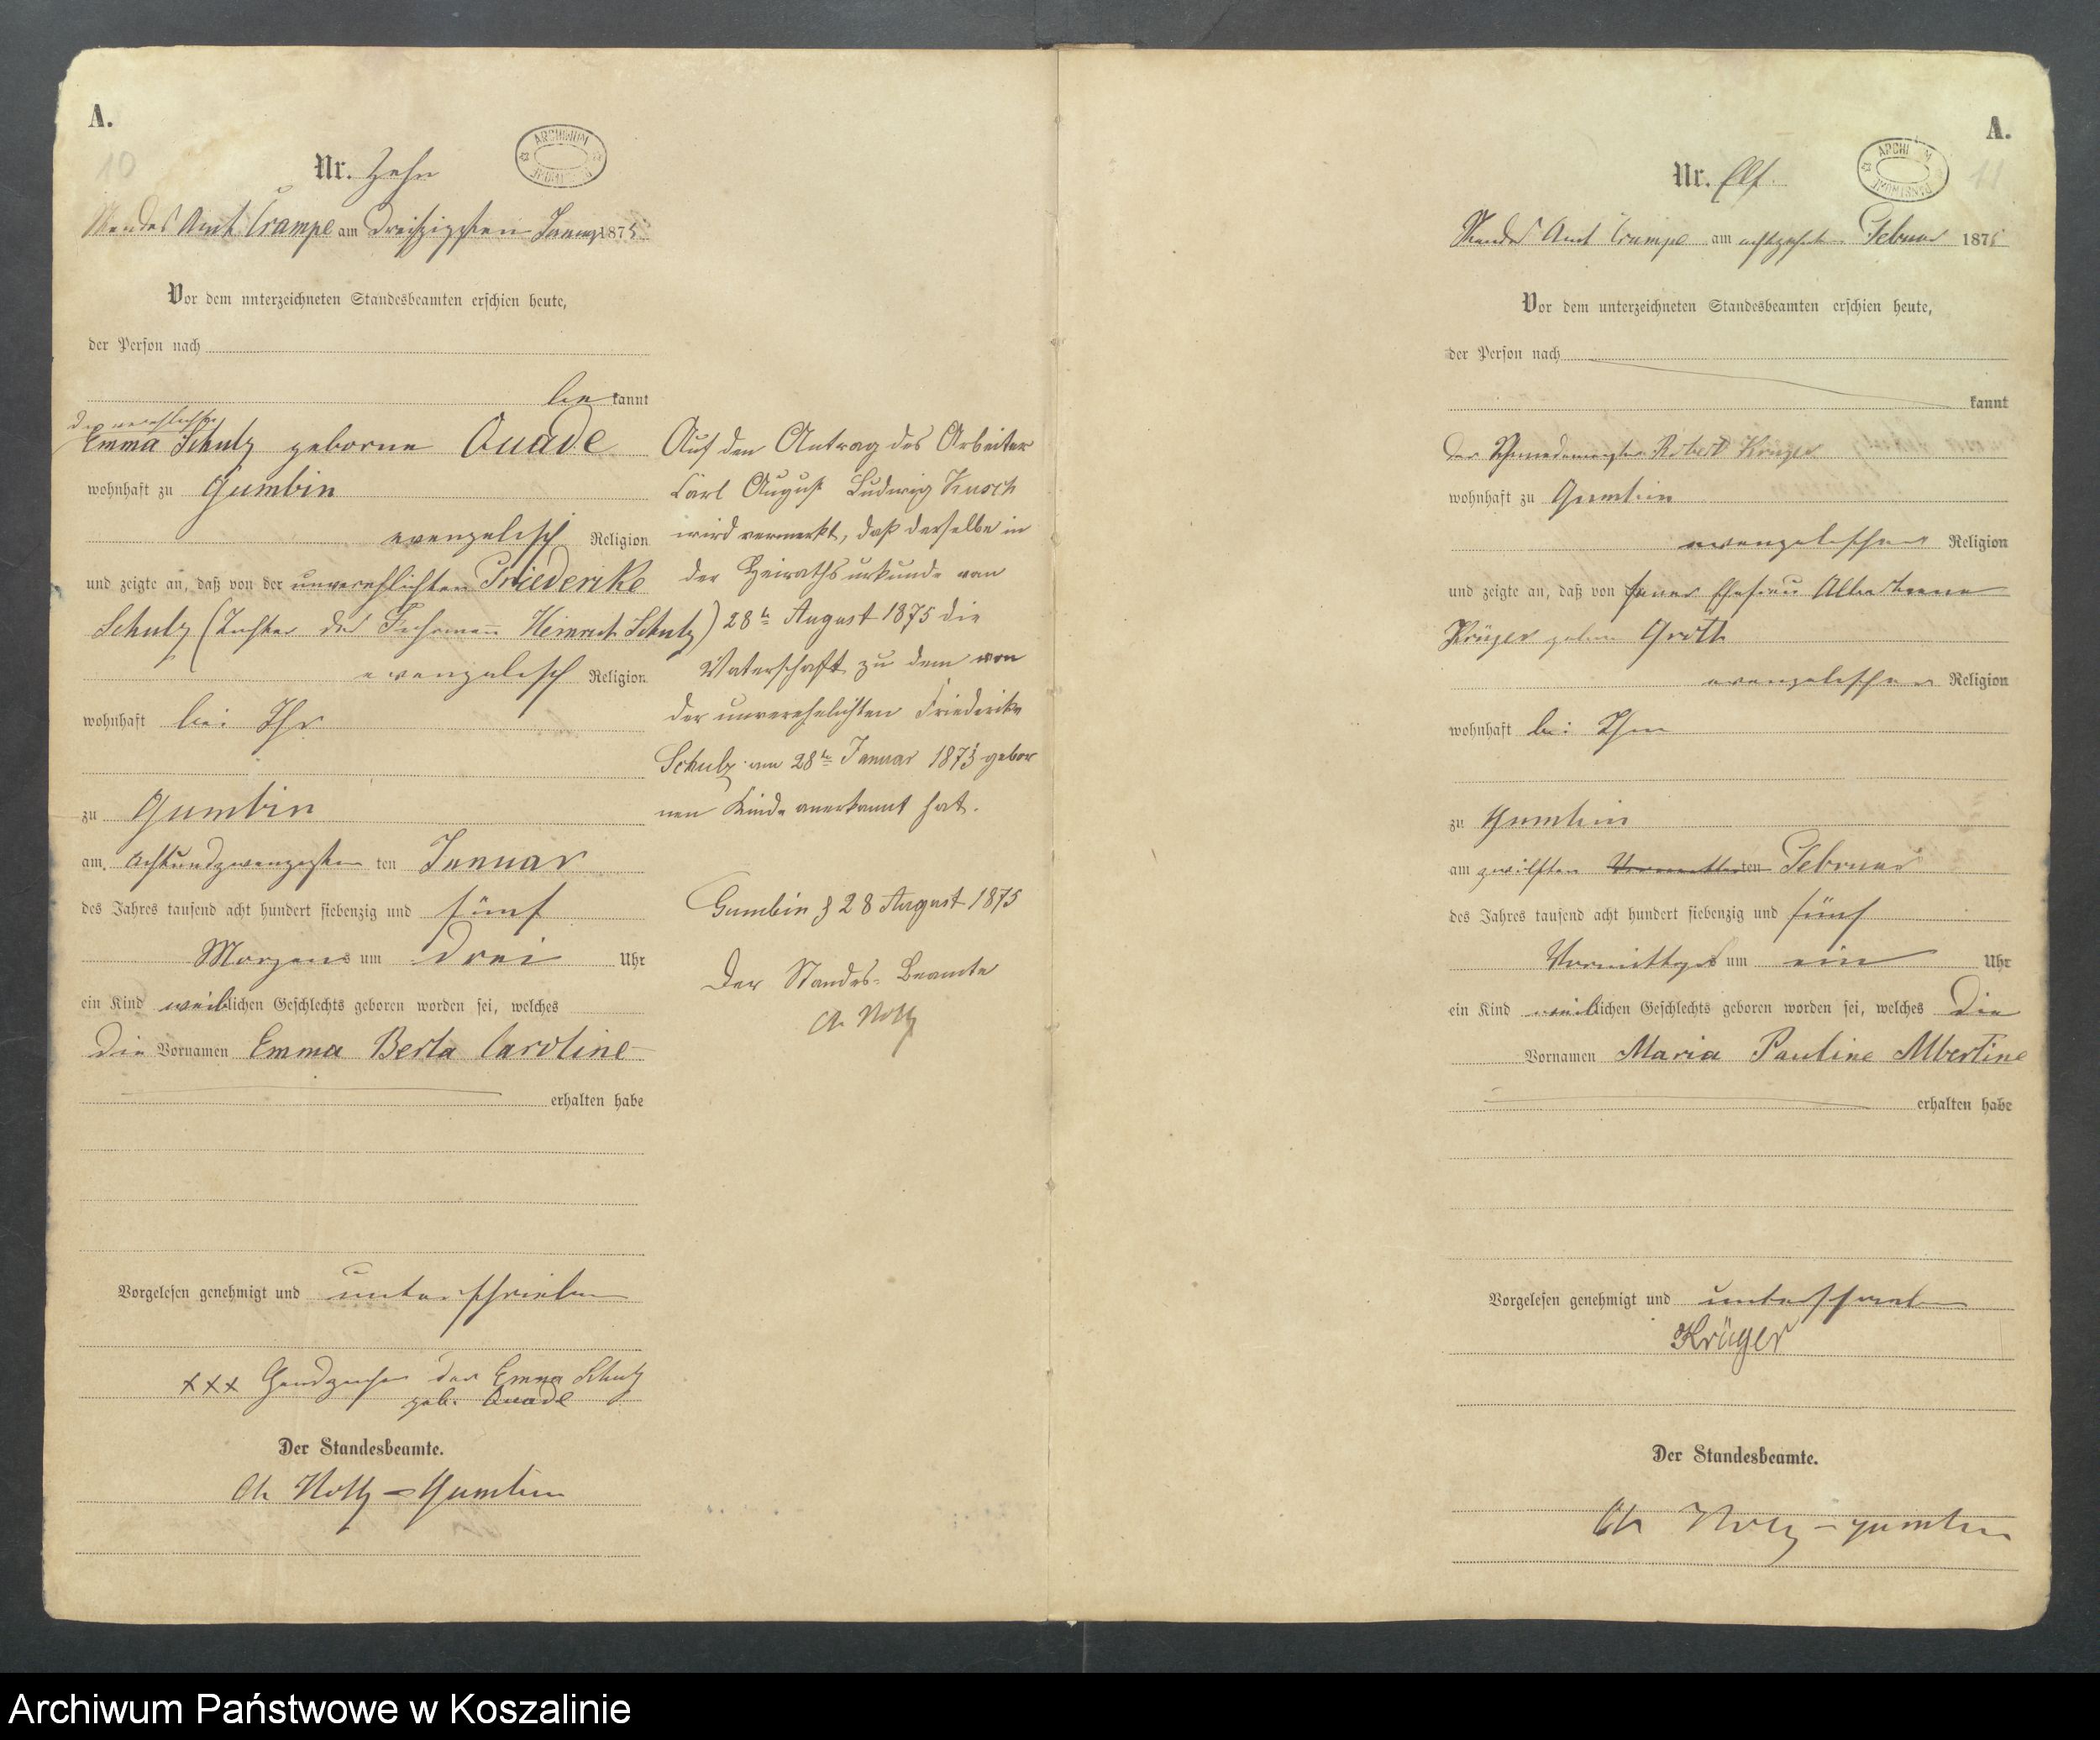 A.
10
Nr. Zehn
ARCHIWUM
Standes Amt Crampe am Dreißigsten Januar 1875
Vor dem unterzeichneten Standesbeamten erschien heute,
der Person nach
be kannt
die verehlichte
Emma Schulz geborne Quade
wohnhaft zu Gumbin
evangelisch Religion
und zeigte an, daß von der unverehlichten Friederike
Schulz (Tochter des Heinrich Schulz)
evangelisch Religion
wohnhaft bei Ihr
zu Gumbin
am Achtundzwanzigsten ten Januar
des Jahres tausend acht hundert siebenzig und fünf
Morgens um drei Uhr
ein Kind weiblichen Geschlechts geboren worden sei, welches
die Vornamen Emma Berta Caroline
erhalten habe
Vorgelesen genehmigt und unterschrieben
xxx Handzeichen der Emma Schulz
geb. Quade
Der Standesbeamte.
Noltz - Gumbin
Auf den Antrag des Arbeiter
Carl August Ludwig Kusch
wird vermerkt, daß derselbe in
der Heirathsurkunde vom
28ten August 1875 die
Vaterschaft zu dem von
der unverehelichten Friederike
Schulz am 28ten Januar 1875 gebor
nen Kinde anerkannt hat.
Gumbin d 28 August 1875
Der Standes-Beamte
Noltz
A.
11
Nr. Elf.
Standes Amt Crampe am achtzehnten Februar 1875
Vor dem unterzeichneten Standesbeamten erschien heute,
der Person nach
kannt
der Schmiedemeister Robert Krüger
wohnhaft zu Gumbin
evangelischer Religion
und zeigte an, daß von seiner Ehefrau Albertine
Krüger geborne Groth
evangelischer Religion
wohnhaft bei Ihm
zu Gumbin
am zwölften ten Februar
des Jahres tausend acht hundert siebenzig und fünf
Vormittags um ein Uhr
ein Kind weiblichen Geschlechts geboren worden sei, welches die
Vornamen Maria Pauline Albertine
erhalten habe
Vorgelesen genehmigt und unterschrieben
Krüger
Der Standesbeamte.
Noltz - Gumbin
Archiwum Państwowe w Koszalinie